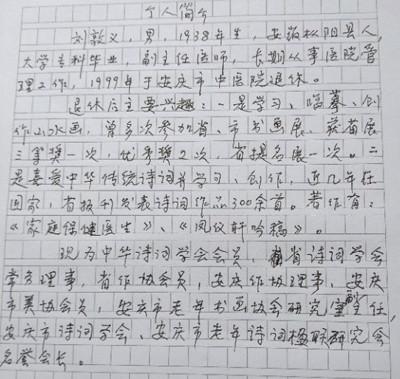 个人简介
刘敦义，男，1938年生，安徽枞阳县人，
大学专科毕业，副主任医师，长期从事医院管
理工作，1999年于安庆市中医院退休。
退休后主要兴趣：一是学习、临摹、创
作山水画，曾多次参加省、市书画展、获省展
三等奖一次，优秀奖2次，省提名展一次。二
是喜爱中华传统诗词并学习、创作，近几年在
国家，省报刊发表诗词作品300余首。著作有：
《家庭保健医生》、《凤仪轩吟稿》。
现为中华诗词学会会员，省诗词学会
常务理事，省作协会员，安庆作协理事，安庆
市美协会员，安庆市老年书画协会研究室副主任，
安庆市诗词学会、安庆市老年诗词楹联研究会
名誉会长。